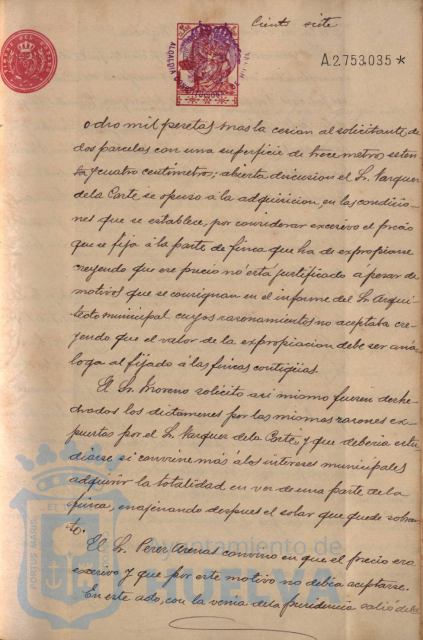 Ciento siete
A2.753.035*
ocho mil pesetas mas la cesion al solicitante, de
dos parcelas con una superficie de trece metros seten
ta y cuatro centimetros; abierta discusion el Sr. Vazquez
de la Corte se opuso á la adquisicion, en las condicio-
nes que se establece, por considerar excesivo el precio
que se fija á la parte de finca que ha de expropiarse
creyendo que ese precio no está justificado á pesar de
motivos que se consignan en el informe del Sr. Arqui-
tecto municipal cuyos razonamientos no aceptaba cre-
yendo que el valor de la expropiacion debe ser aná-
loga al fijado á las fincas contigüas.
El Sr. Moreno solicito asi mismo fuesen deshe-
chados los dictamenes por las mismas razones ex-
puestas por el Sr. Vazquez de la Corte, y que deberia estu
diarse si convine más á los intereses municipales
adquirir la totalidad en vez de una parte de la
finca, enajenando despues el solar que quede sobran-
te.
El Sr. Perez Arenas convino en que el precio era
excesivo y que por este motivo no debia aceptarse.
En este acto, con la venia de la presidencia salió de la
Ayuntamiento de
HUELVA
PORTUS MARIS